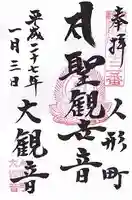 奉拝
人形町
聖観世音
大観音
平成二十七年
一月三日